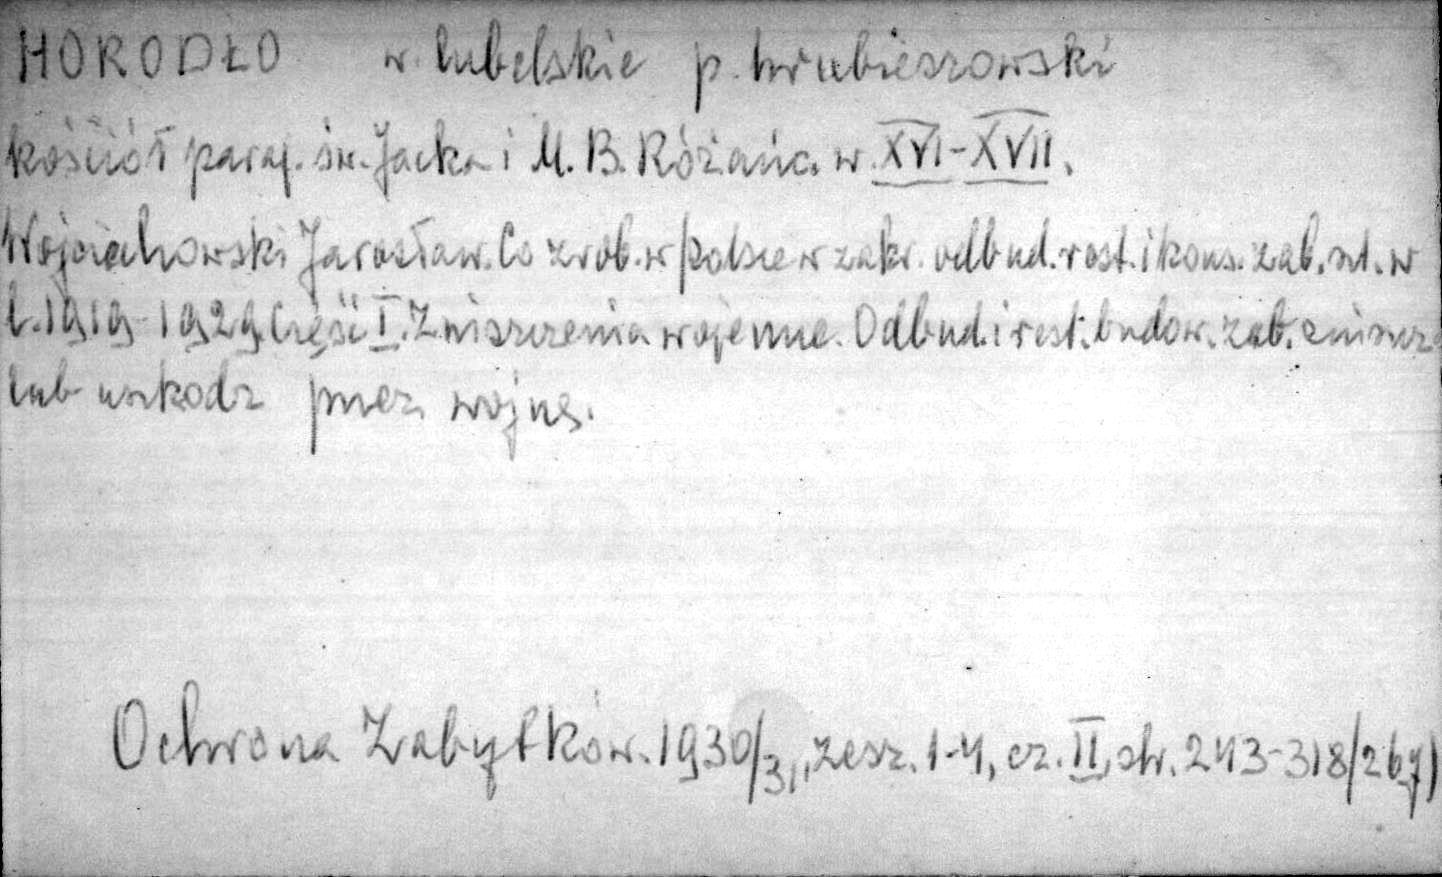 HORODŁO w. lubelskie p. hrubieszowski
kościół paraf. św. Jacka i M. B. Różańc. w. XVI-XVII.
Wojciechowski Jarosław. Co zrob. w Polsce w zakr. odbud. rest. i kons. zab. szt. w
l. 1919-1929. Część I. Zniszczenia wojenne. Odbud. i rest. budow. zab. zniszcz
lub uszkodz przez wojnę.
Ochrona Zabytków. 1930/31, zesz. 1-4, cz. II, str. 243-318/267)